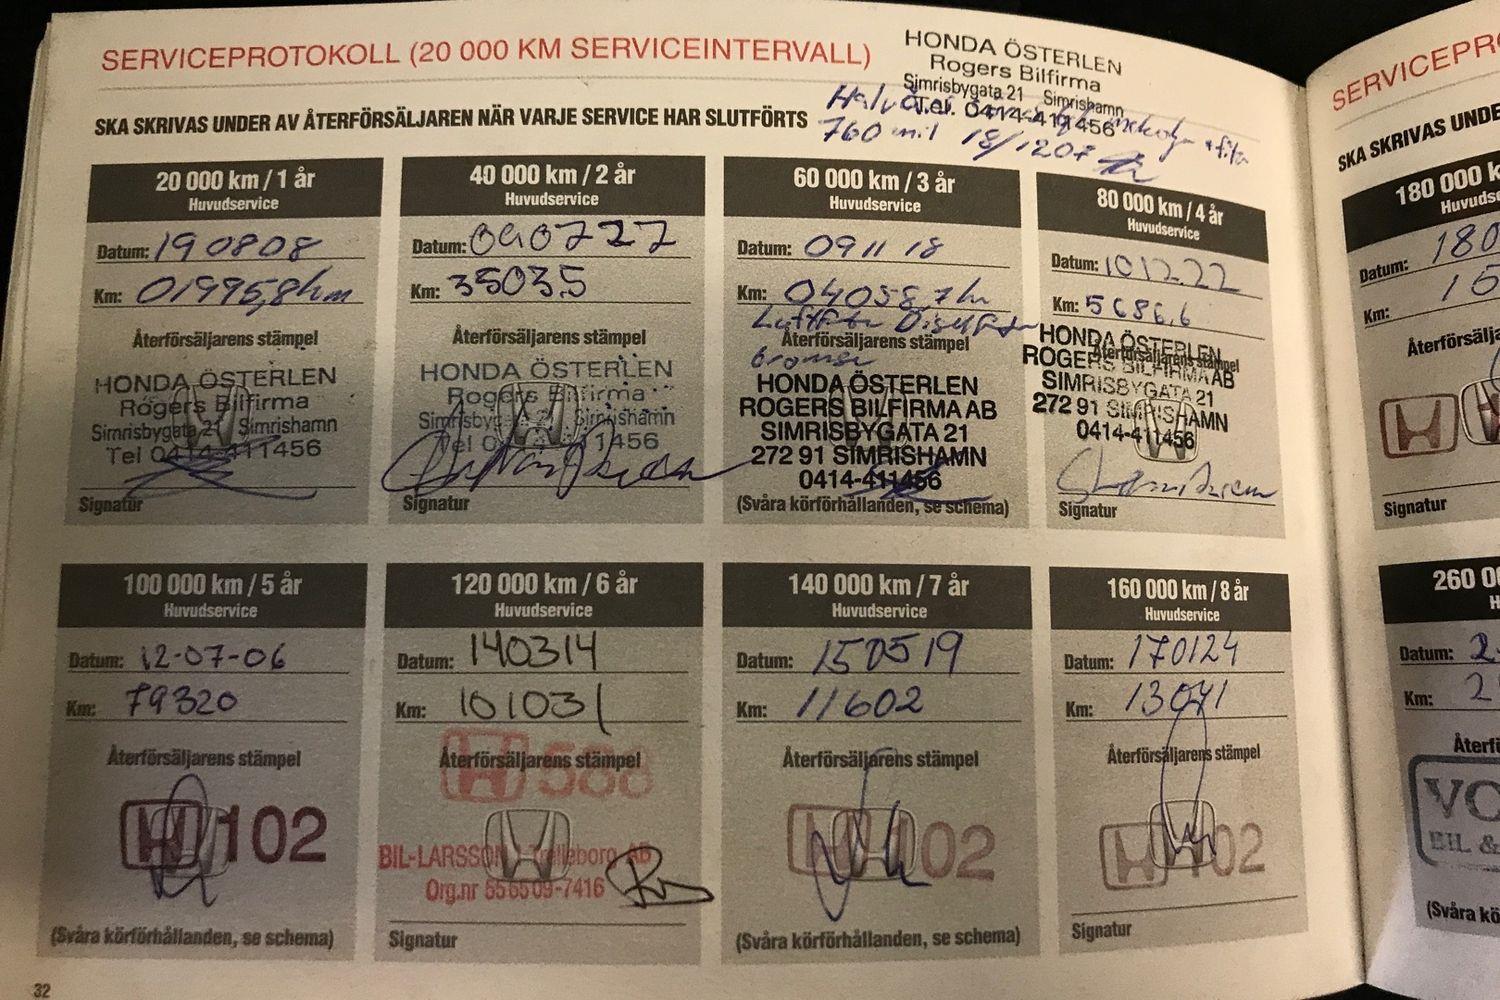 SERVICEPROTOKOLL (20 000 KM SERVICEINTERVALL)
HONDA ÖSTERLEN
Rogers Bilfirma
Simrisbygata 21 Simrishamn
Tel. 0414-411456
760 mil 18/1207
SKA SKRIVAS UNDER AV ÅTERFÖRSÄLJAREN NÄR VARJE SERVICE HAR SLUTFÖRTS
20 000 km / 1 år
Huvudservice
Datum: 190808
Km: 01995,8km
Återförsäljarens stämpel
HONDA ÖSTERLEN
Rogers Bilfirma
Simrisbygata 21 Simrishamn
Tel 0414-411456
Signatur
40 000 km / 2 år
Huvudservice
Datum: 090727
Km: 35035
Återförsäljarens stämpel
HONDA ÖSTERLEN
Rogers Bilfirma
Simrisbygata 21 Simrishamn
Tel 0414-411456
Signatur
60 000 km / 3 år
Huvudservice
Datum: 091118
Km: 04058,7km
Luftfilter
Återförsäljarens stämpel
bromser
HONDA ÖSTERLEN
ROGERS BILFIRMA AB
SIMRISBYGATA 21
272 91 SIMRISHAMN
0414-411456
(Svåra körförhållanden, se schema)
80 000 km / 4 år
Huvudservice
Datum: 101222
Km: 5686,6
Återförsäljarens stämpel
HONDA ÖSTERLEN
ROGERS BILFIRMA AB
SIMRISBYGATA 21
272 91 SIMRISHAMN
0414-411456
Signatur
100 000 km / 5 år
Huvudservice
Datum: 12-07-06
Km: 79320
Återförsäljarens stämpel
102
(Svåra körförhållanden, se schema)
120 000 km / 6 år
Huvudservice
Datum: 140314
Km: 101031
Återförsäljarens stämpel
588
BIL-LARSSON I Trelleborg AB
Org.nr 556509-7416
Signatur
140 000 km / 7 år
Huvudservice
Datum: 150519
Km: 11602
Återförsäljarens stämpel
102
(Svåra körförhållanden, se schema)
160 000 km / 8 år
Huvudservice
Datum: 170124
Km: 13041
Återförsäljarens stämpel
102
Signatur
32
SERVICEPRO
SKA SKRIVAS UNDE
180 000 k
Huvuds
Datum: 180
Km: 15
Återförsäljars
Signatur
260 0
H
Datum: 2
Km: 2
Återf
VO
BIL &
(Svåra kö